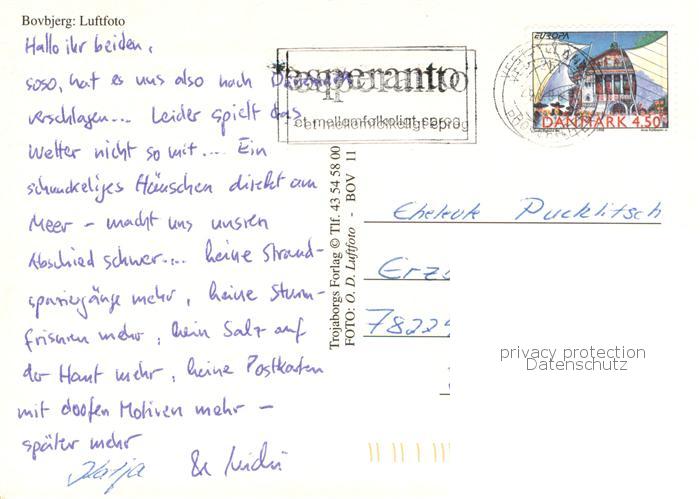 Bovbjerg: Luftfoto
Hallo ihr beiden,
soso, hat es uns also nach Dänemark
verschlagen... Leider spielt das
Wetter nicht so mit.... Ein
schnuckeliges Häuschen direkt am
Meer – macht uns unsren
Abschied schwer.... keine Strand-
spaziergänge mehr, keine Sturm-
frisuren mehr, kein Salz auf
der Haut mehr, keine Postkarten
mit doofen Motiven mehr –
später mehr
Katja &
esperanto
et mellemfolkeligt sprog
EUROPA
DANMARK 4.50
Trojaborgs Forlag © Tlf. 43 54 58 00
FOTO: O. D. Luftfoto - BOV 11
Eheleute Pucklitsch
Erz
78224
privacy protection
Datenschutz